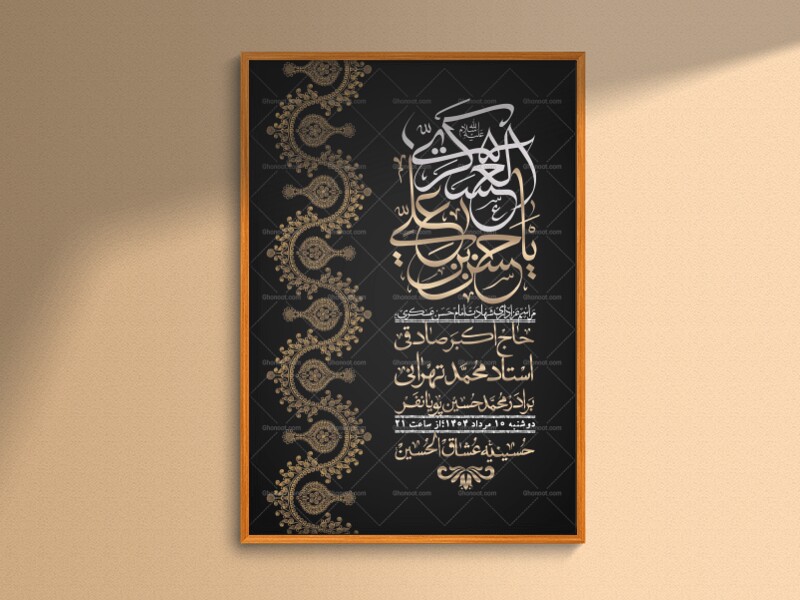 العسكري
عليه السلام
يا حسن بن علي
مراسم عزاداری شهادت امام حسن عسکری
حاج اکبر صادقی
استاد محمد تهرانی
برادر محمد حسین پویانفر
دوشنبه ۱۵ مرداد ۱۴۰۴ از ساعت ۲۱
حسینیه عشاق الحسین
Ghonoot.com